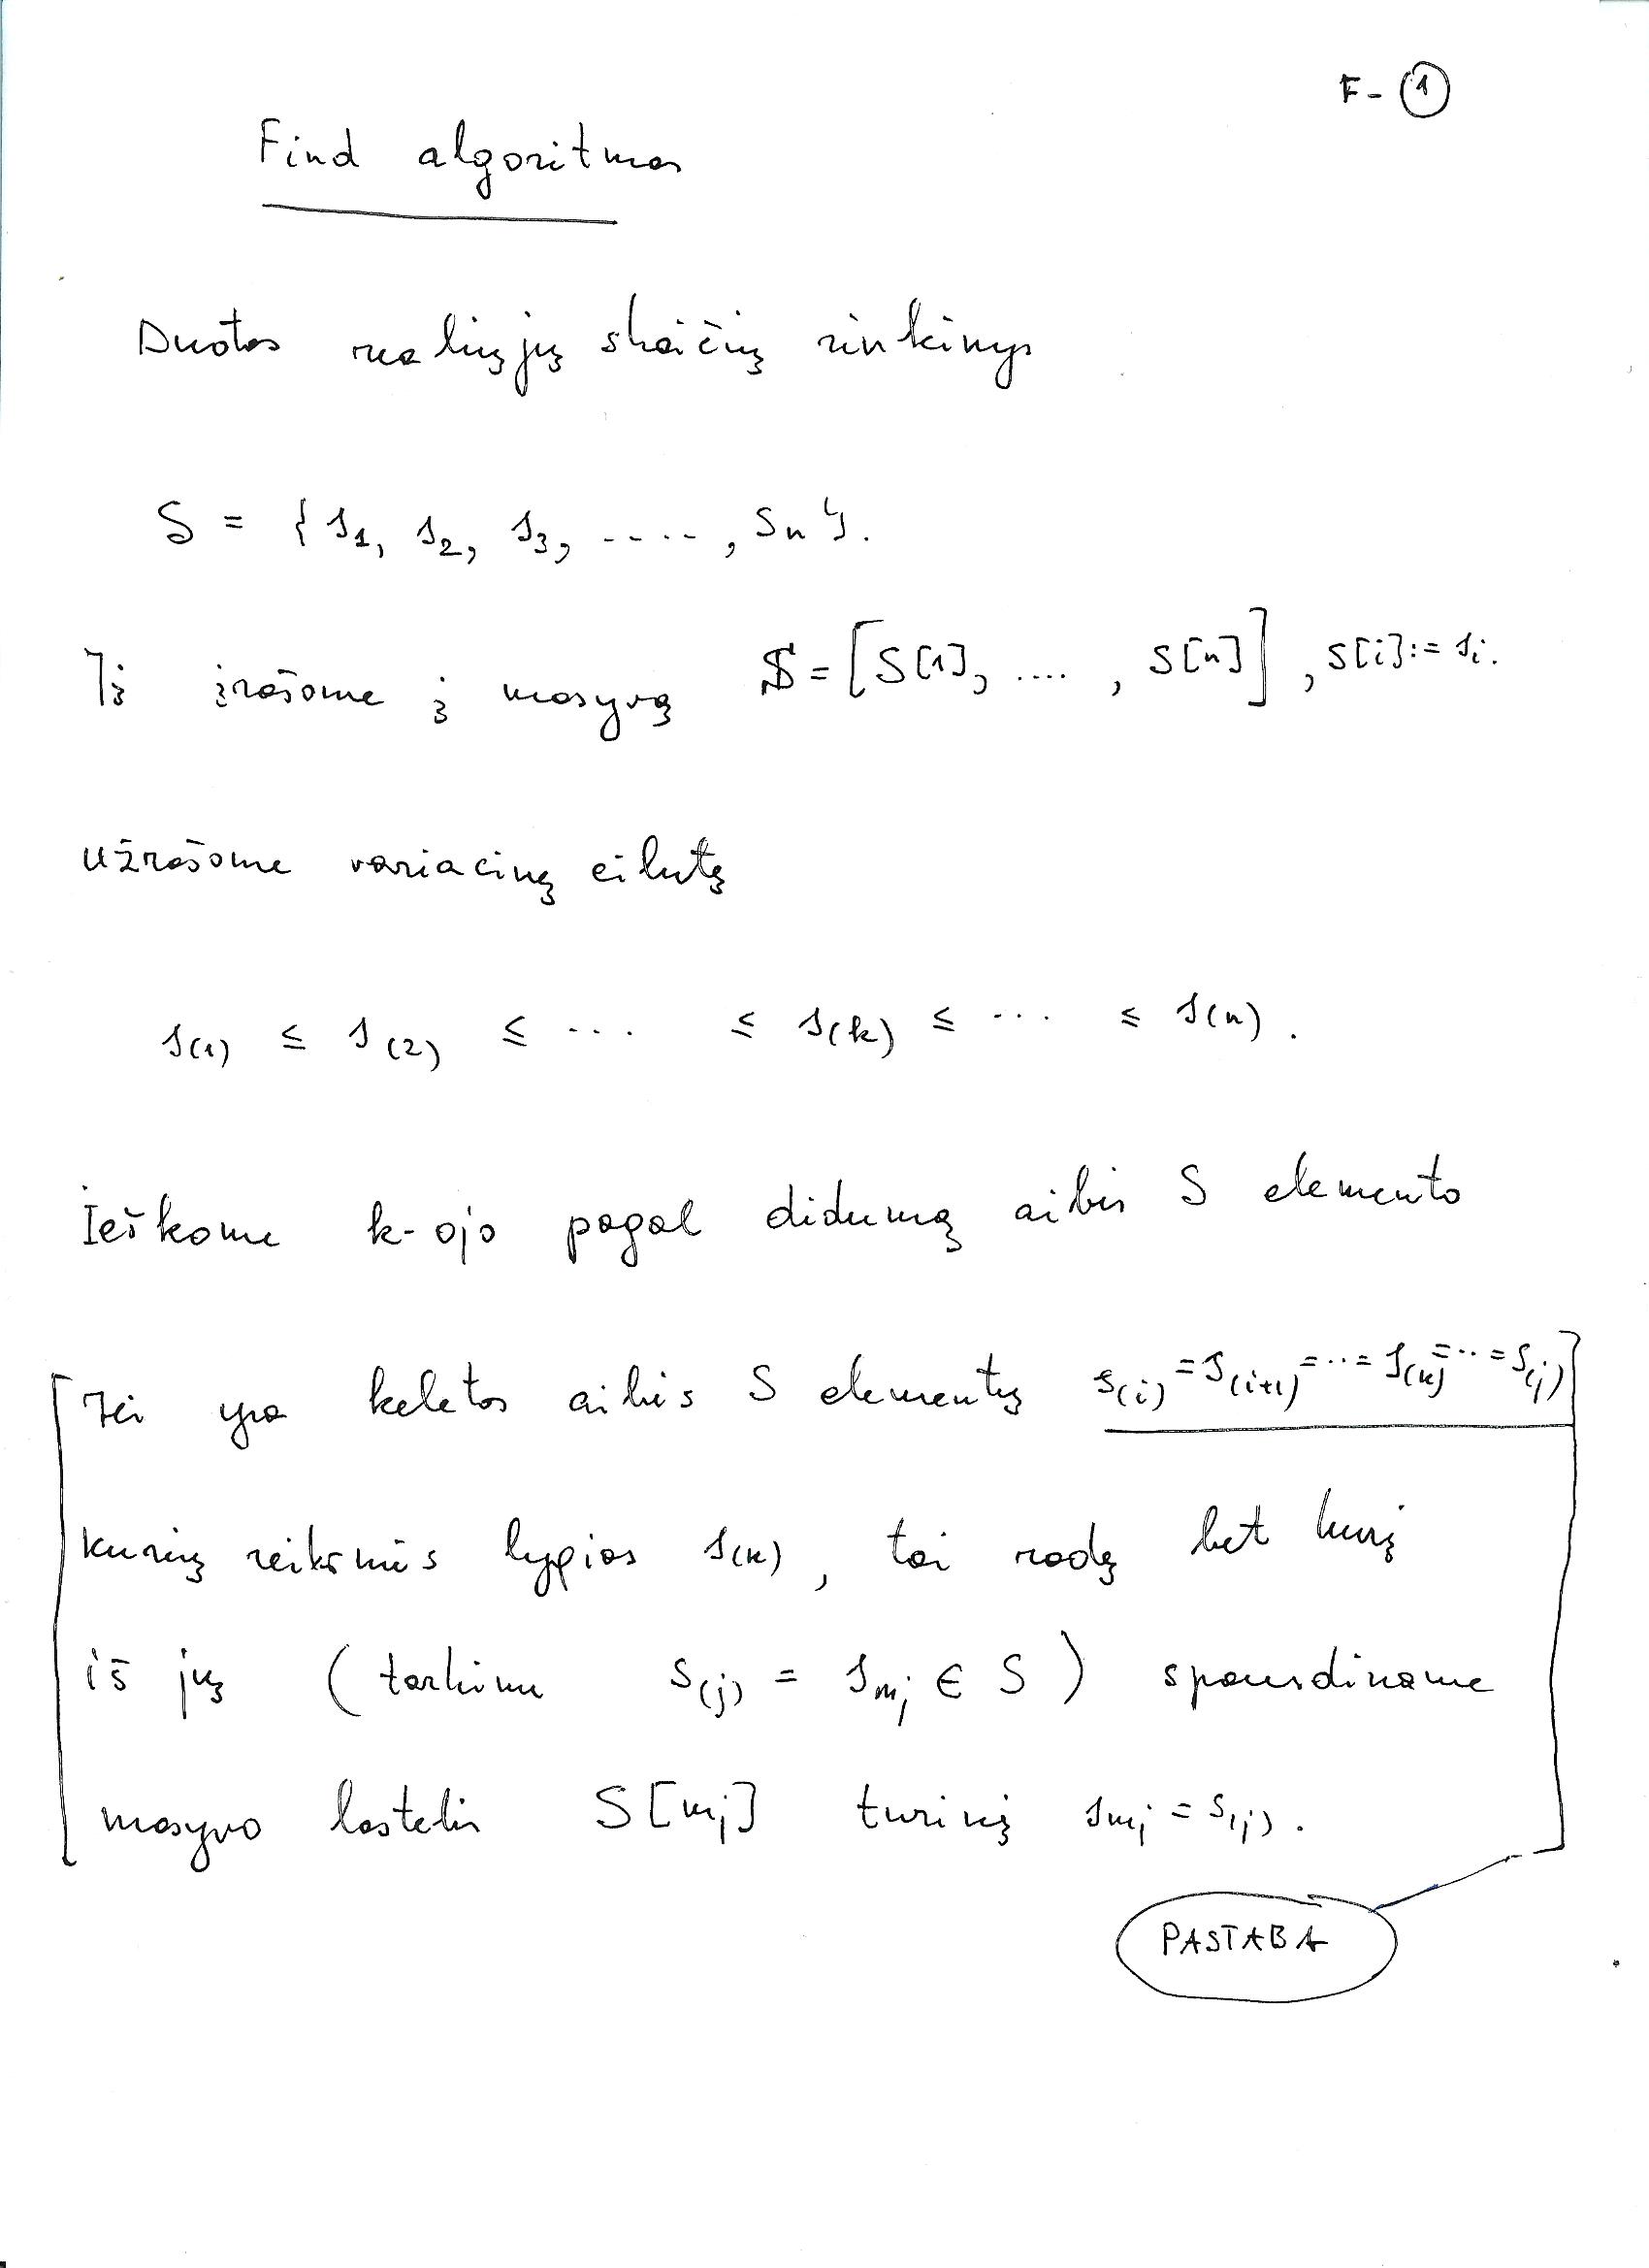 F-①
Find algoritmas
Duotas realiųjų skaičių rinkinys
S = { s₁, s₂, s₃, ....., sₙ }.
Jį įrašome į masyvą $ = [ S[1], ...., S[n] ], S[i]:= sᵢ.
Užrašome variacinę eilutę
s(1) ≤ s(2) ≤ ... ≤ s(k) ≤ ... ≤ s(n).
Ieškome k-ojo pagal didumą aibės S elemento
Jei yra keletas aibės S elementų s(i) = s(i+1) = ... = s(k) = ... = s(j)
kurių reikšmės lygios s(k), tai radę bet kurį
iš jų (tarkime s(j) = s_mj ∈ S) spausdiname
masyvo ląstelės S[mj] turinį s_mj = s(j).
PASTABA